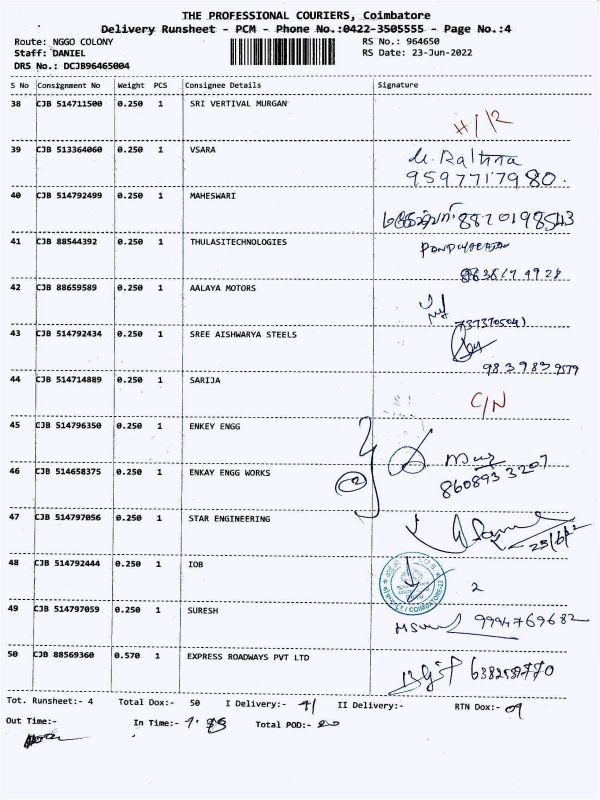 THE PROFESSIONAL COURIERS, Coimbatore
Delivery Runsheet - PCM - Phone No.:0422-3505555 - Page No.:4
Route: NGGO COLONY RS No.: 964650
Staff: DANIEL RS Date: 23-Jun-2022
DRS No.: DCJB96465004
S No Consignment No Weight PCS Consignee Details Signature
38 CJB 514711500 0.250 1 SRI VERTIVAL MURGAN
H/R
39 CJB 513364060 0.250 1 VSARA
9597717980.
40 CJB 514792499 0.250 1 MAHESWARI
8870198543
41 CJB 88544392 0.250 1 THULASITECHNOLOGIES
42 CJB 88659589 0.250 1 AALAYA MOTORS
43 CJB 514792434 0.250 1 SREE AISHWARYA STEELS
9839839579
44 CJB 514714889 0.250 1 SARIJA
C/N
45 CJB 514796350 0.250 1 ENKEY ENGG
46 CJB 514658375 0.250 1 ENKAY ENGG WORKS
2 8608933207
47 CJB 514797056 0.250 1 STAR ENGINEERING
48 CJB 514792444 0.250 1 IOB
2
49 CJB 514797059 0.250 1 SURESH
9994769682
50 CJB 88569360 0.570 1 EXPRESS ROADWAYS PVT LTD
Tot. Runsheet:- 4 Total Dox:- 50 I Delivery:- 41 II Delivery:- RTN Dox:- 09
Out Time:- In Time:- Total POD:-